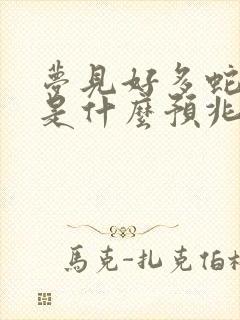 夢見好多蛇
是什麼預兆
馬克-扎克伯